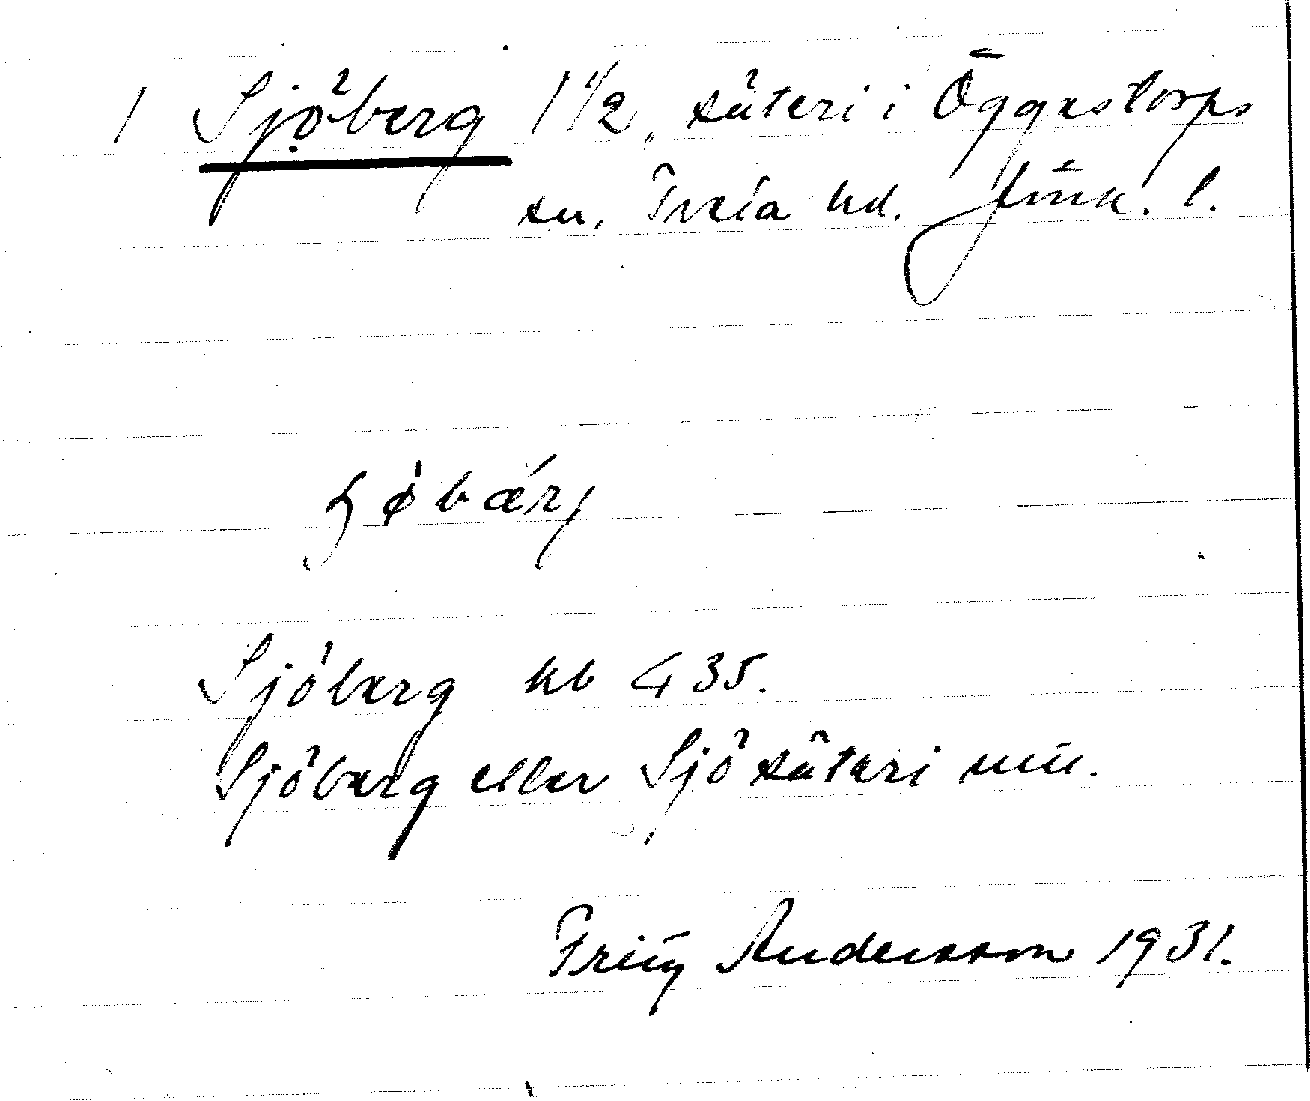 1 Sjöberg 1 1/2, säteri i Öggestorps
sn, Tveta hd. Jönk. l.
Sjöberg kb 435.
Sjöberg eller Sjö säteri
Andersson 1931.